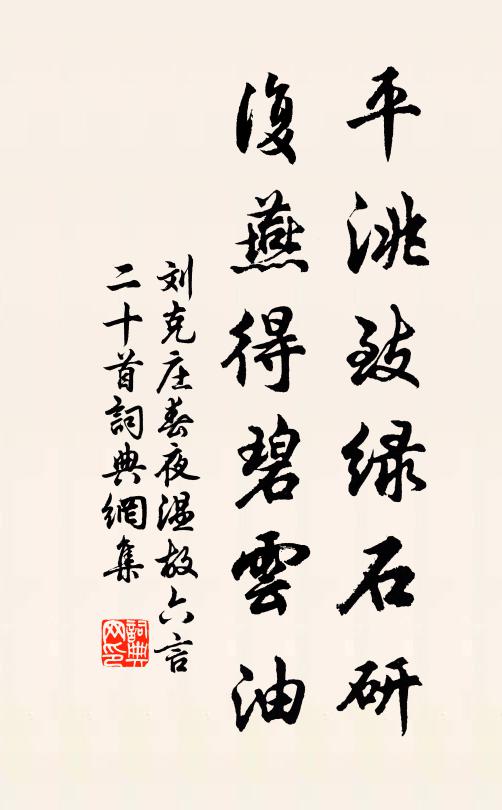 平洮致绿石研
復燕得碧雲油
刘克庄春夜温故六言
二十首詞典網集
詞典网印